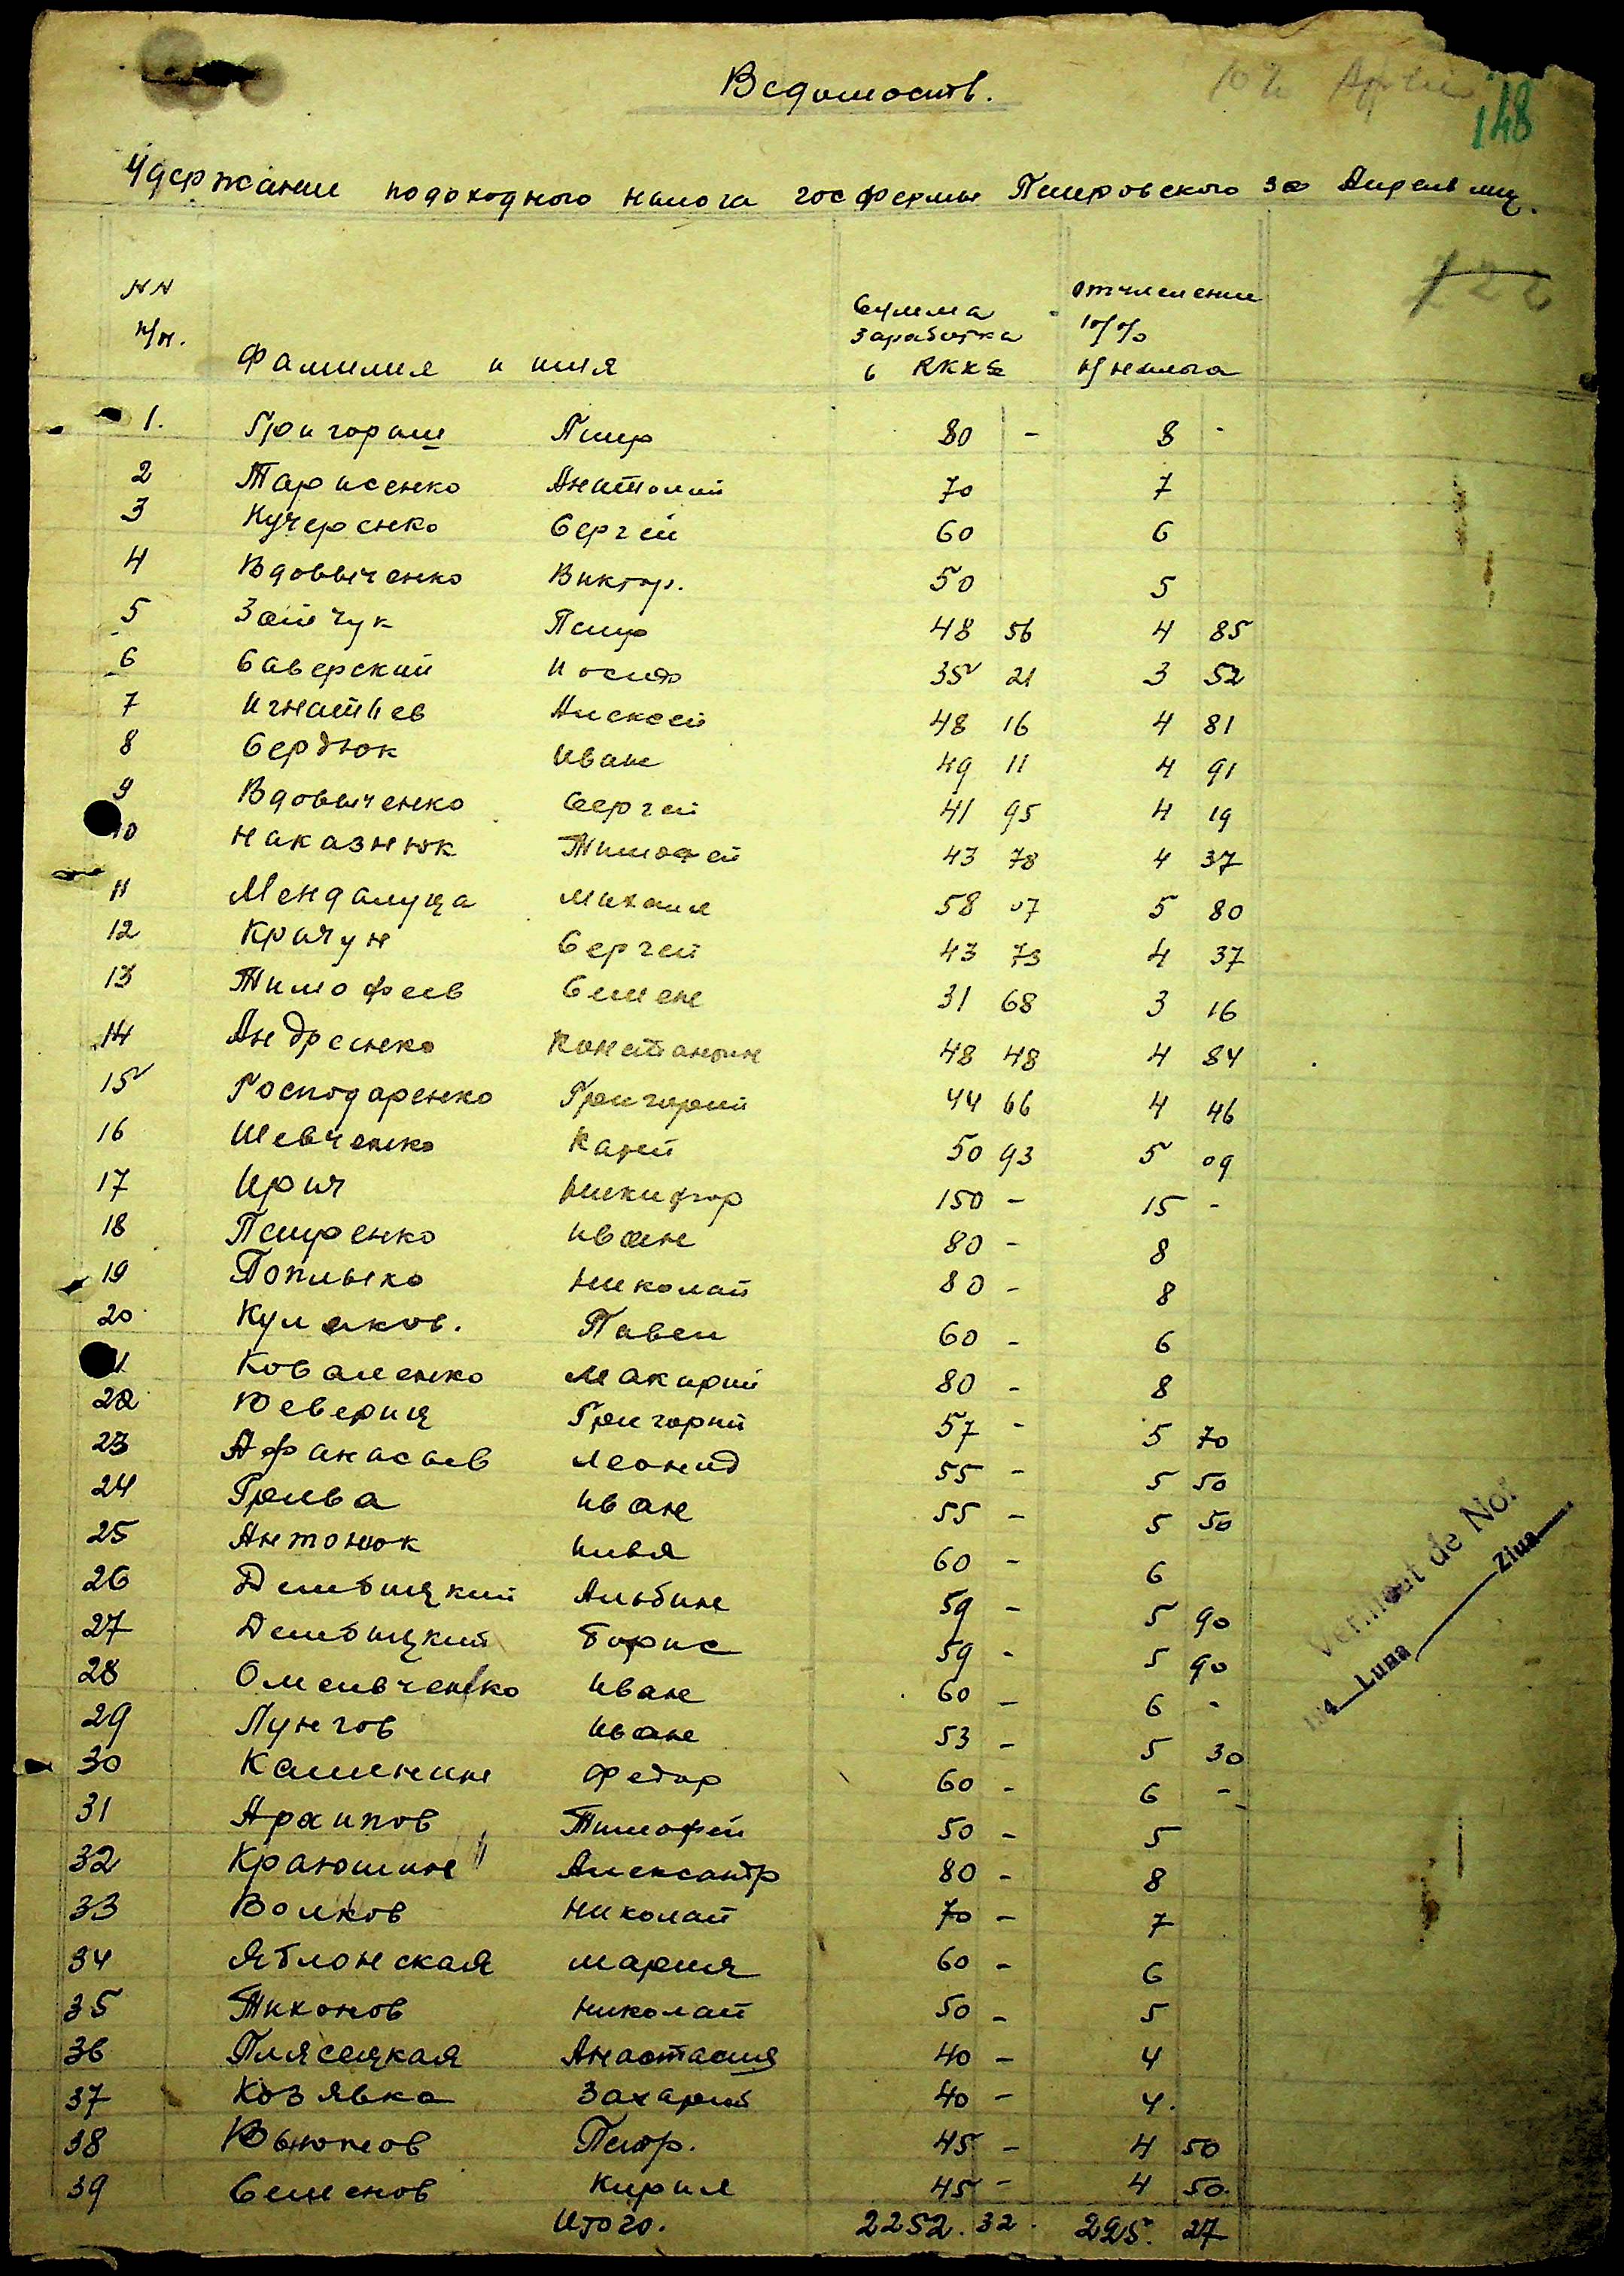 Ведомость.
148
Удержание подоходного налога госфермы Петровского за Апрель м-ц.
NN
п/п.
Фамилия и имя
Сумма
заработка
в RKKS
отчисление
10%
п/налога
1. Григораш Петр 80 - 8 -
2 Тарасенко Анатолий 70 7
3 Кучеренко Сергей 60 6
4 Вдовыченко Виктор. 50 5
5 Зайчук Петр 48 56 4 85
6 Саверский Иосиф 35 21 3 52
7 Игнатьев Алексей 48 16 4 81
8 Сердюк Иван 49 11 4 91
9 Вдовыченко Сергей 41 95 4 19
10 Наказнюк Тимофей 43 78 4 37
11 Мендалуца Михаил 58 07 5 80
12 Крачун Сергей 43 73 4 37
13 Тимофеев Семен 31 68 3 16
14 Андреенко Константин 48 48 4 84
15 Господаренко Григорий 44 66 4 46
16 Шевченко 50 93 5 09
17 Ирич Никифор 150 - 15 -
18 Петренко Иван 80 - 8
19 Попиынко Николай 80 - 8
20 Кулаков. Павел 60 - 6
21 Коваленко Макарий 80 - 8
22 Юеверица Григорий 57 - 5 70
23 Афанасьев Леонид 55 - 5 50
24 Грива Иван 55 - 5 50
25 Антонюк Илья 60 - 6
26 Дембицкий Альбин 59 - 5 90
27 Дембицкий Борис 59 - 5 90
28 Омельченко Иван 60 - 6 -
29 Лунгов Иван 53 - 5 30
30 Каменин Федор 60 - 6 -
31 Архипов Тимофей 50 - 5
32 Краюшин Александр 80 - 8
33 Волков Николай 70 - 7
34 Яблонская Мария 60 - 6
35 Тихонов Николай 50 - 5
36 Плясецкая Анастасия 40 - 4
37 Козявка Захарий 40 - 4.
38 Петр. 45 - 4 50
39 Семенов Кирил 45 - 4 50
Итого. 2252.32. 225. 27
Verificat de Noi
194 Luna Ziua